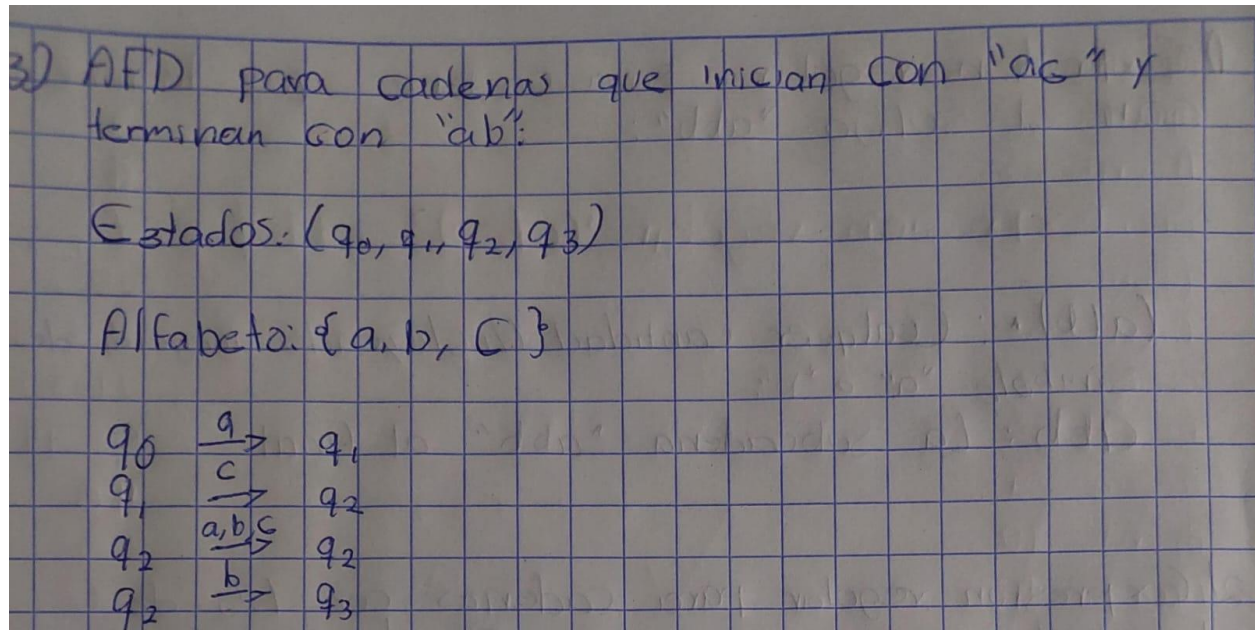 3) AFD para cadenas que inician con "ac" y
terminan con "ab":
Estados: (q0, q1, q2, q3)
Alfabeto: {a, b, c}
q0 a→ q1
q1 c→ q2
q2 a,b,c→ q2
q2 b→ q3